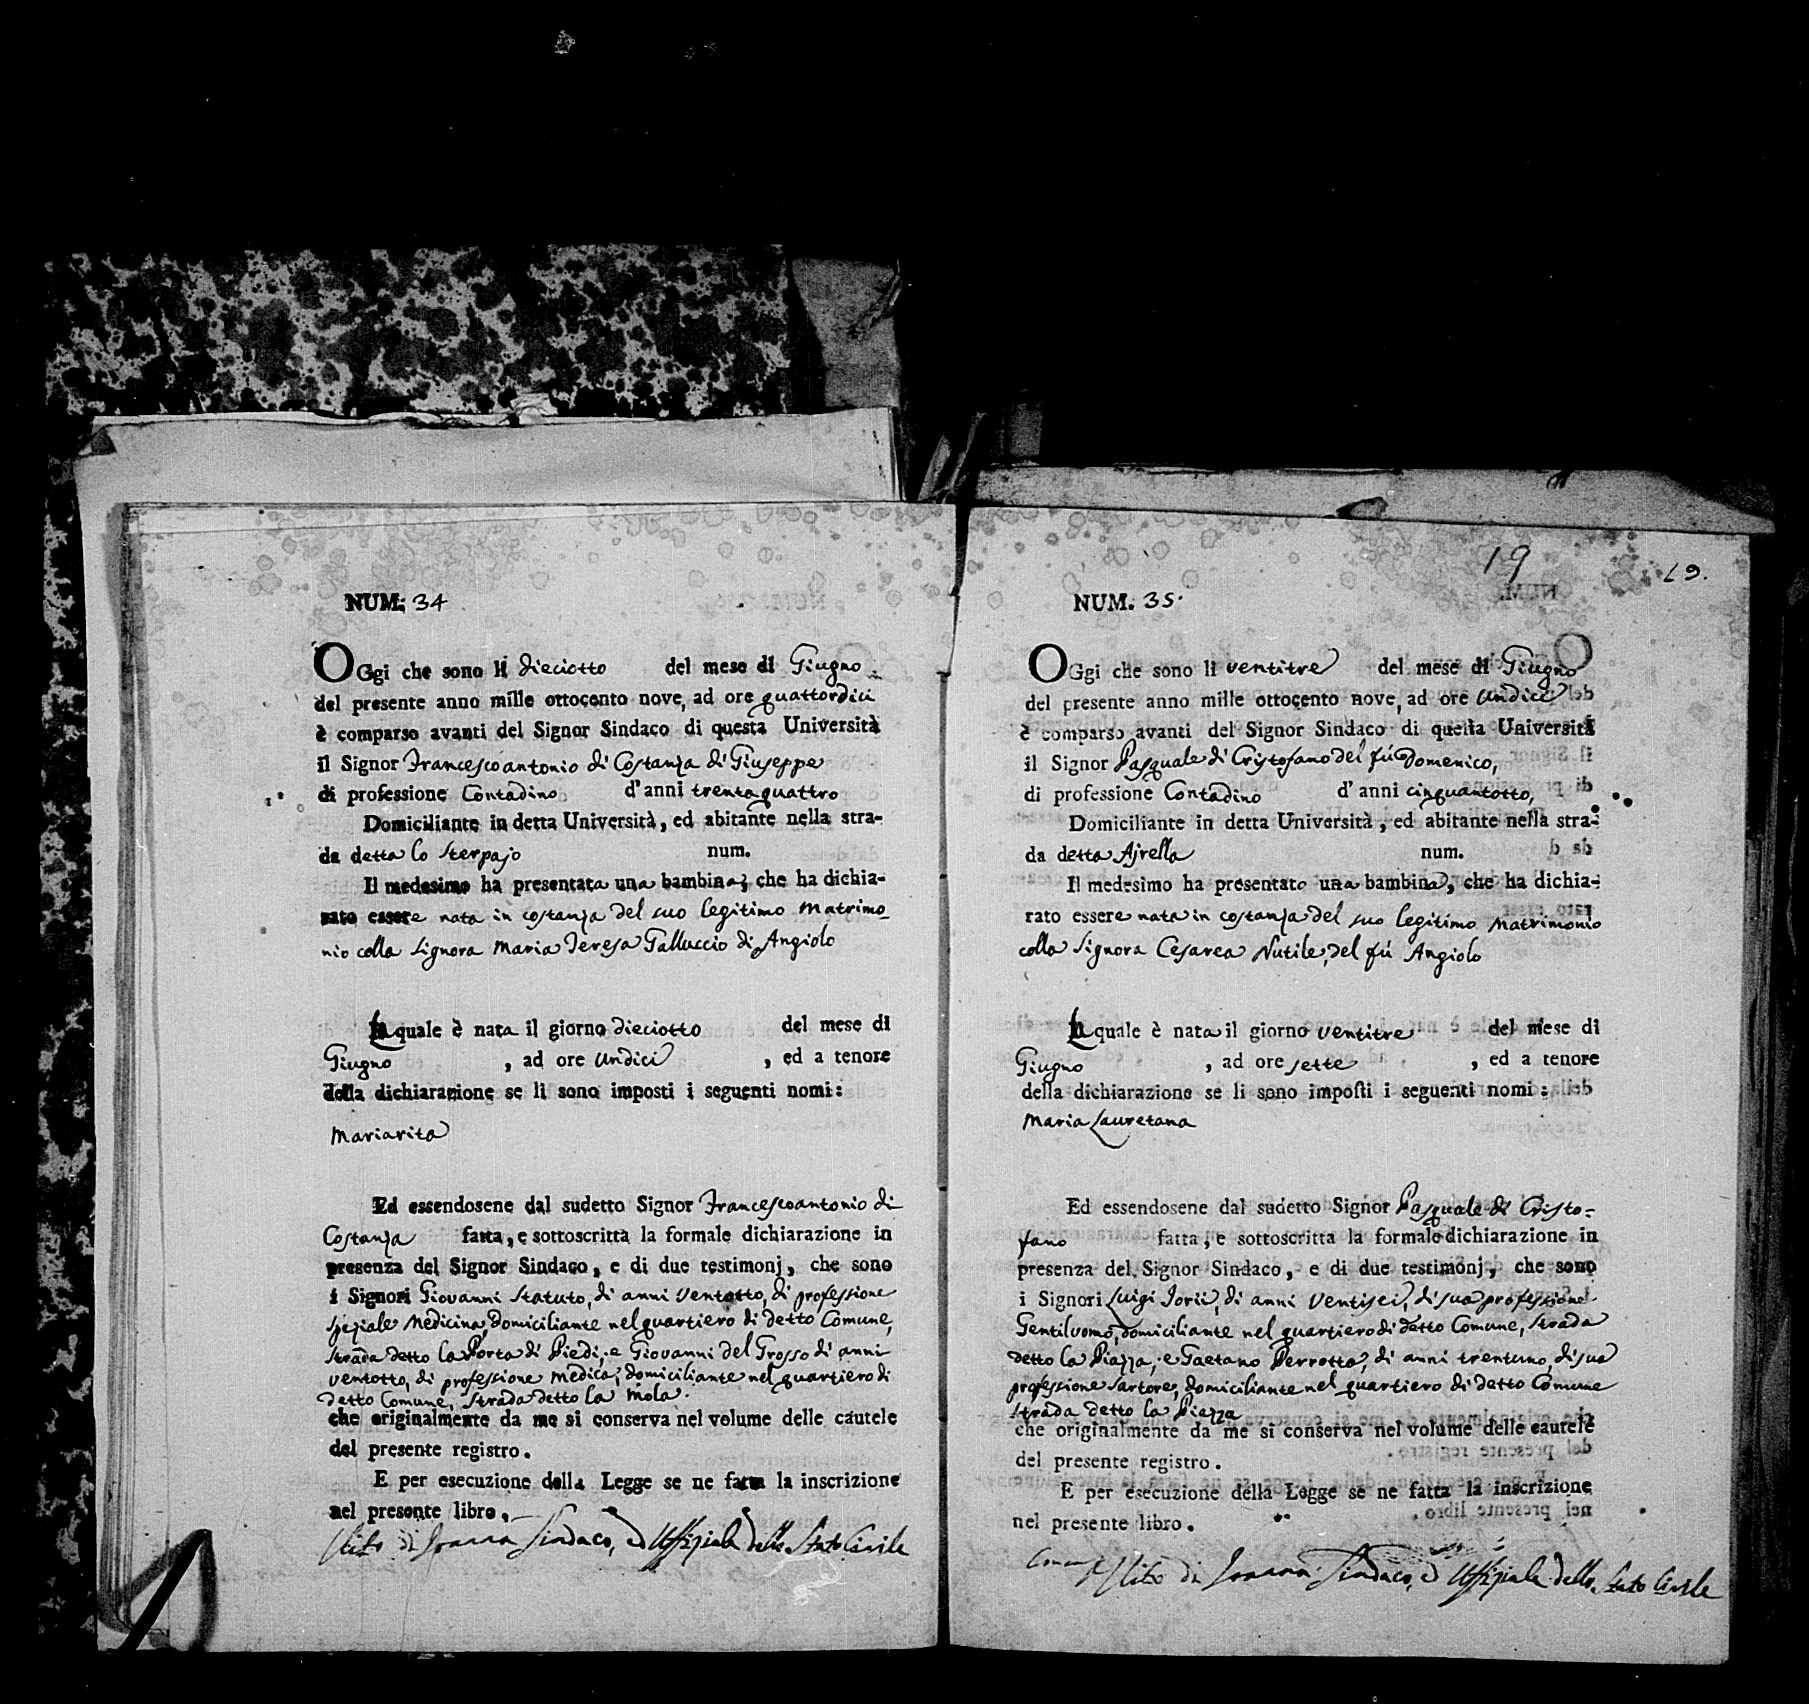 NUM. 34
OGgi che sono li dieciotto del mese di Giugno
del presente anno mille ottocento nove, ad ore quattordici
è comparso avanti del Signor Sindaco di questa Università
il Signor Francescoantonio di Costanza di Giuseppe
di professione Contadino d'anni trentaquattro
Domiciliante in detta Università, ed abitante nella stra-
da detta lo Sterpajo num.
Il medesimo ha presentata una bambina, che ha dichia-
rato essere nata in costanza del suo legitimo Matrimo-
nio colla Signora Maria Teresa Galluccio di Angiolo
La quale è nata il giorno dieciotto del mese di
Giugno , ad ore undici , ed a tenore
della dichiarazione se li sono imposti i seguenti nomi:
Mariarita
Ed essendosene dal sudetto Signor Francescoantonio di
Costanza fatta, e sottoscritta la formale dichiarazione in
presenza del Signor Sindaco, e di due testimonj, che sono
i Signori Giovanni Statuto, di anni ventotto, di professione
speziale Medicina, domiciliante nel quartiero di detto Comune,
strada detto la Porta di Piedi, e Giovanni del Grosso di anni
ventotto, di professione Medica, domiciliante nel quartiero di
detto Comune, strada detto la Mola.
che originalmente da me si conserva nel volume delle cautele
del presente registro.
E per esecuzione della Legge se ne fatta la inscrizione
nel presente libro.
Vito di Sindaco, ed Uffiziale dello Stato Civile
19
19.
NUM. 35.
OGgi che sono li ventitre del mese di Giugno
del presente anno mille ottocento nove, ad ore undici
è comparso avanti del Signor Sindaco di questa Università
il Signor Pasquale di Cristofano del fú Domenico,
di professione Contadino d'anni cinquantotto,
Domiciliante in detta Università, ed abitante nella stra-
da detta Ajrella num.
Il medesimo ha presentato una bambina, che ha dichia-
rato essere nata in costanza del suo legitimo Matrimonio
colla Signora Cesarea Nutile, del fú Angiolo
La quale è nata il giorno ventitre del mese di
Giugno , ad ore sette , ed a tenore
della dichiarazione se li sono imposti i seguenti nomi:
Maria Lauretana
Ed essendosene dal sudetto Signor Pasquale di Cristo=
fano fatta, e sottoscritta la formale dichiarazione in
presenza del Signor Sindaco, e di due testimonj, che sono
i Signori Luigi Iorii, di anni ventisei, di sua professione
Gentiluomo, domiciliante nel quartiero di detto Comune, strada
detto la Piazza, e Gaetano Perrotta, di anni trentuno, di sua
professione sartore, domiciliante nel quartiero di detto Comune
strada detto la Piazza
che originalmente da me si conserva nel volume delle cautele
del presente registro.
E per esecuzione della Legge se ne fatta la inscrizione
nel presente libro.
Vito di Sindaco, ed Uffiziale dello Stato Civile